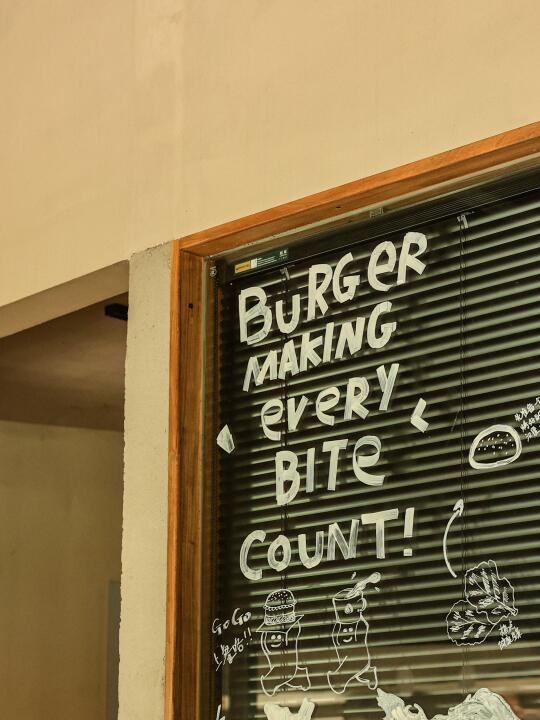 BURGER
MAKING
eVeRY
BITe
COUNT!
GoGo